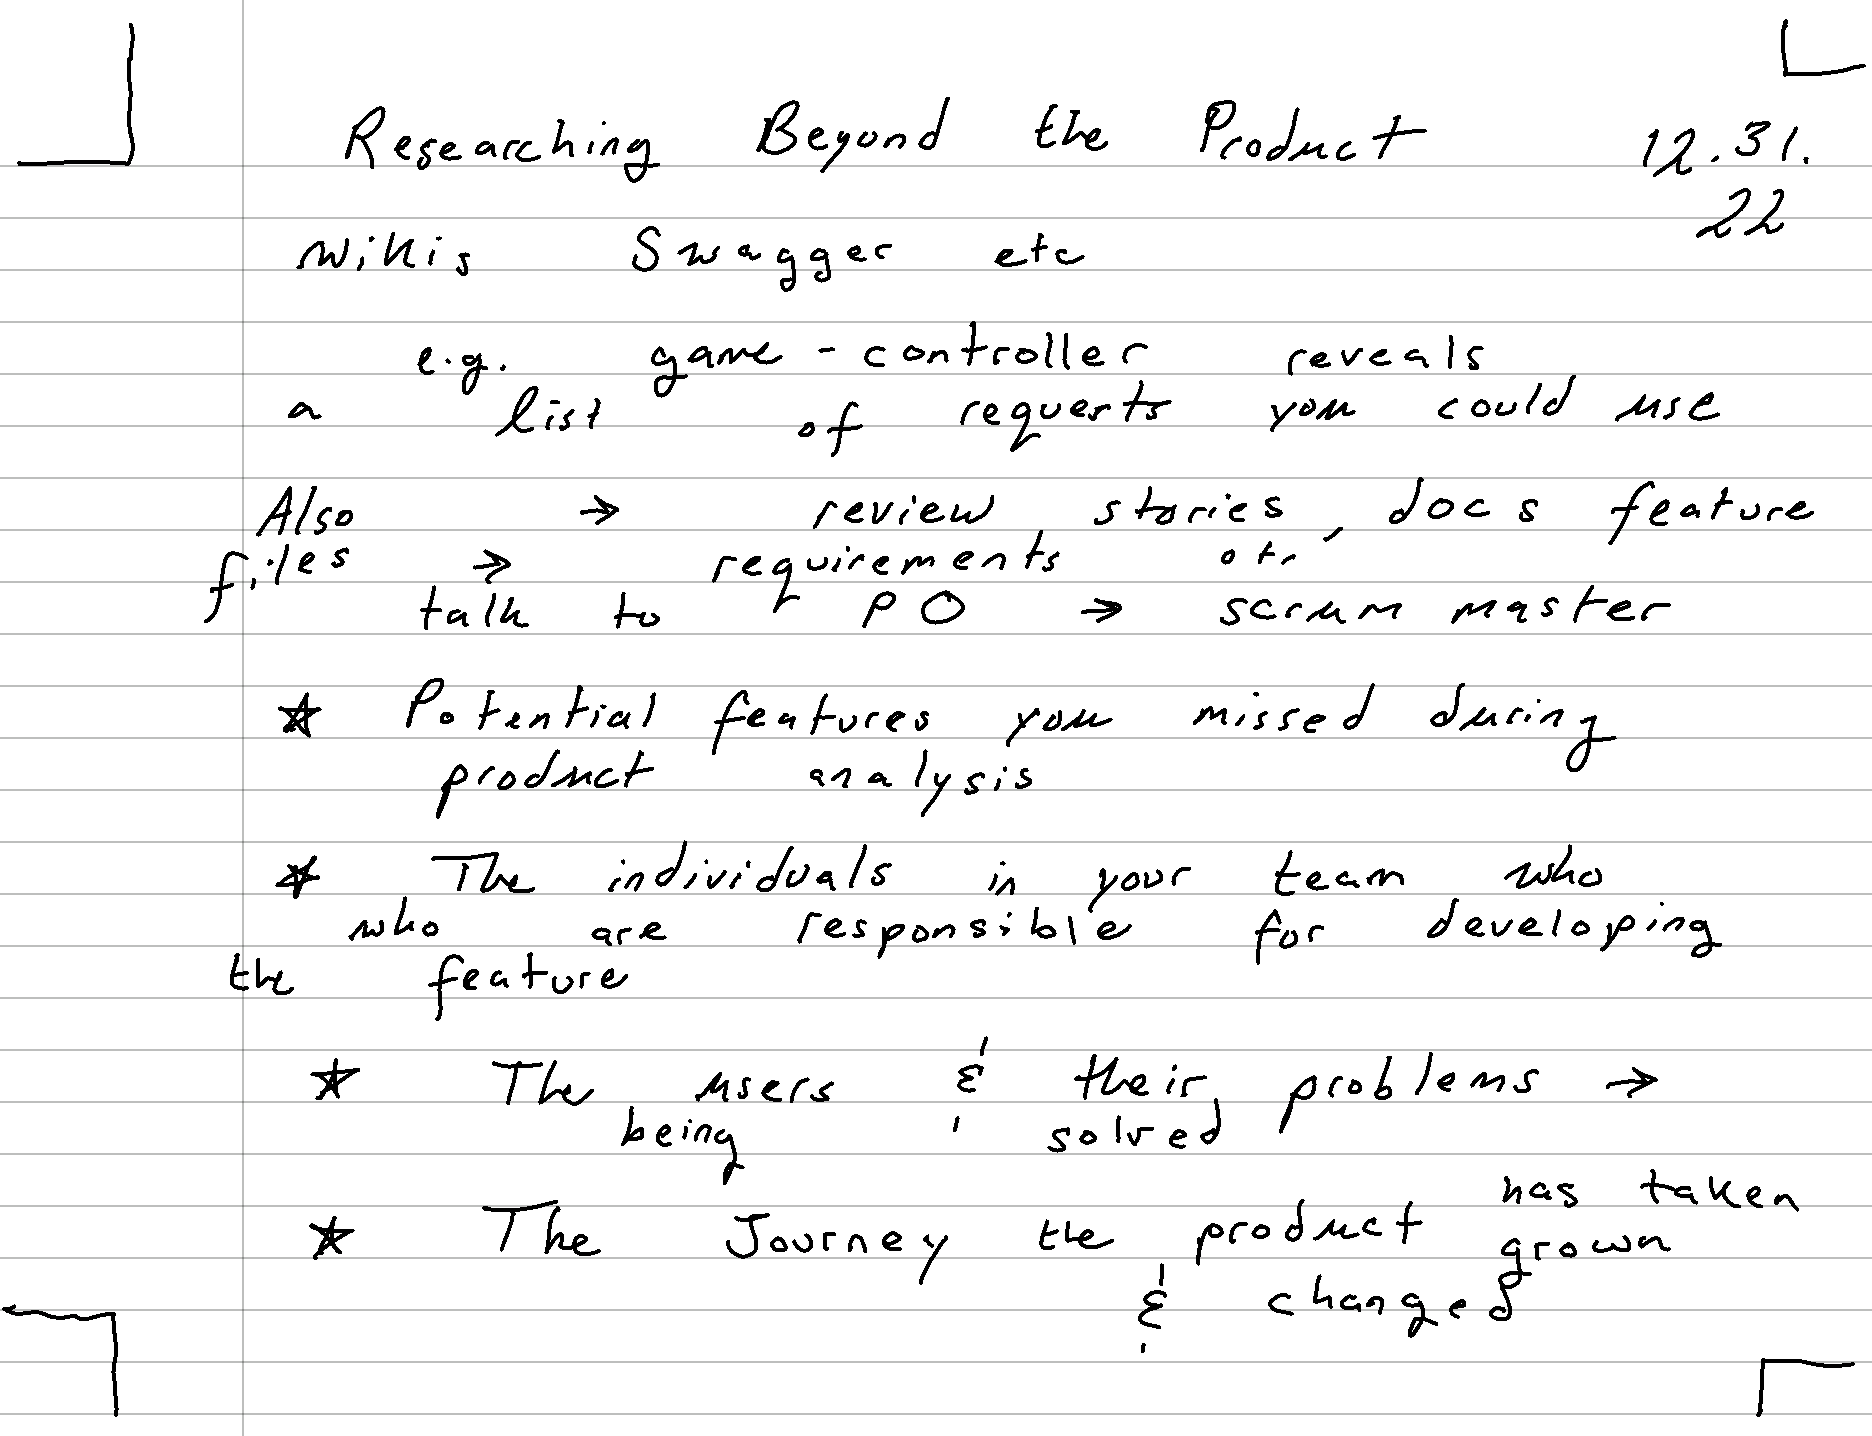 Researching Beyond the Product 12.31.
22
Wikis Swagger etc
e.g. game-controller reveals
a list of requests you could use
Also → review stories, docs feature
files → requirements etc
talk to PO → scrum master
☆ Potential features you missed during
product analysis
☆ The individuals in your team who
who are responsible for developing
the feature
☆ The users & their problems →
being solved
has taken
☆ The Journey the product grown
& changed